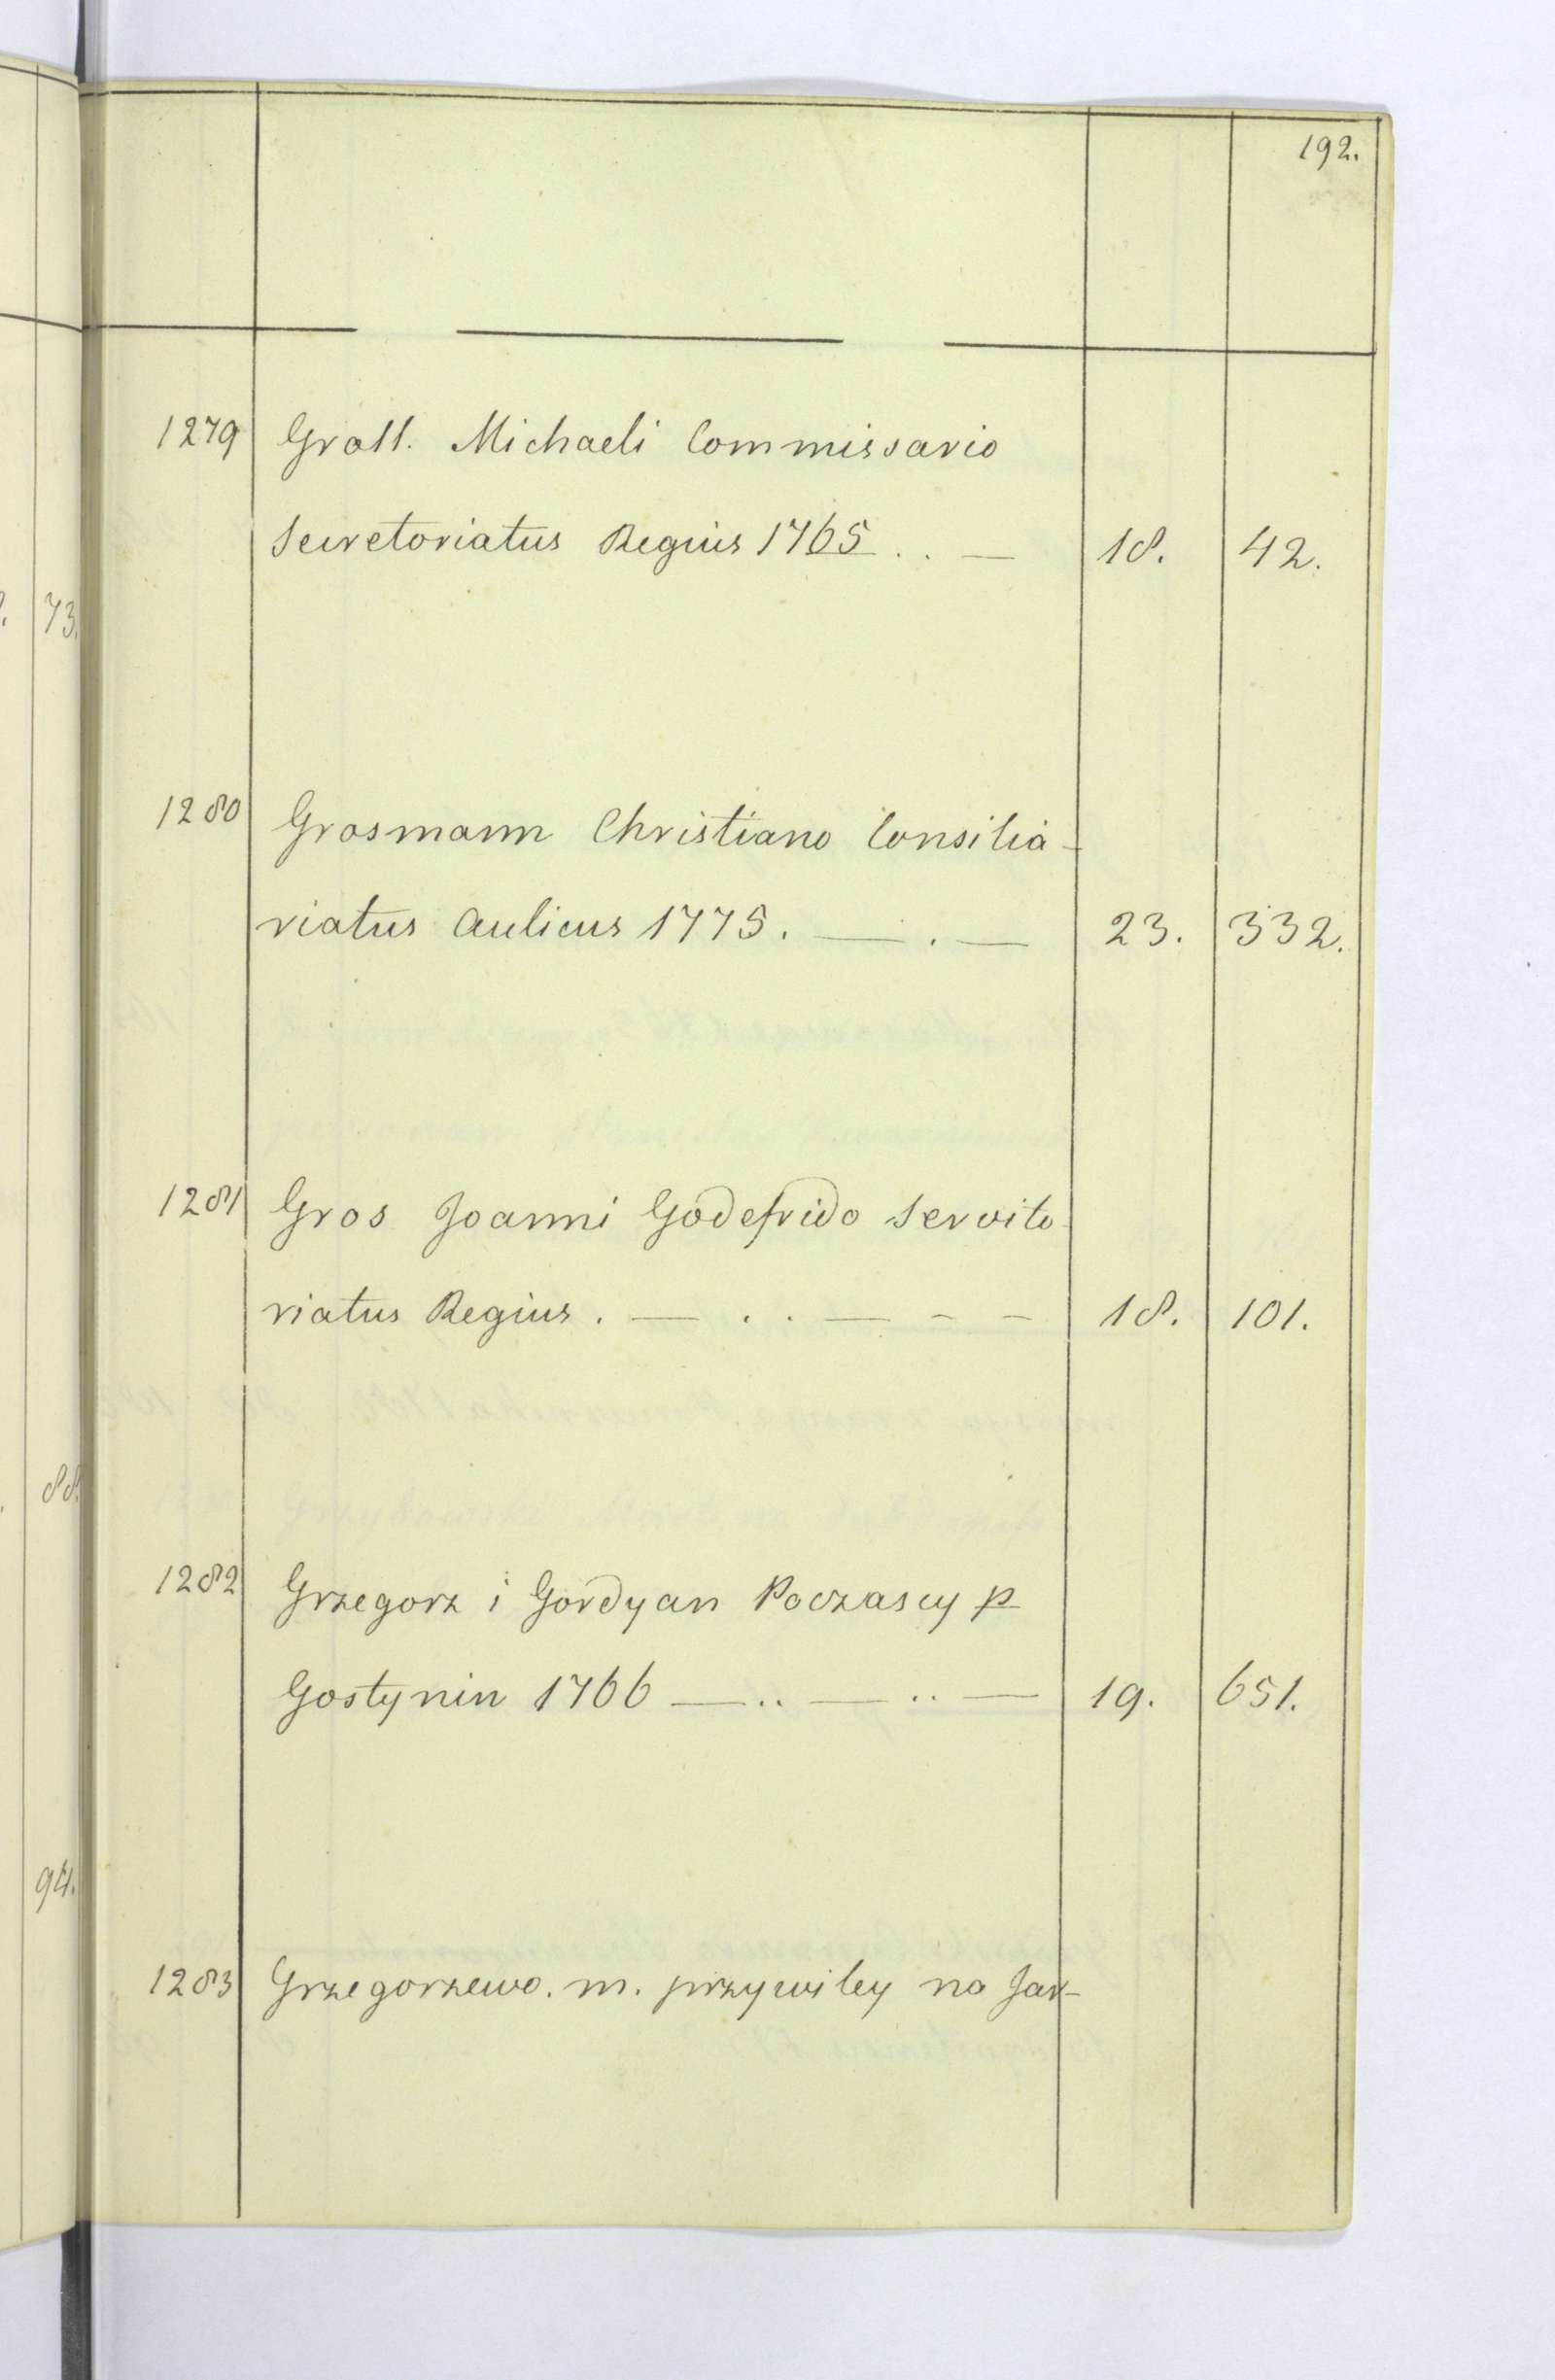 192.
1279 Groll. Michaeli Commissario
Secretoriatus Regius 1765 . . — 18. 42.
1280 Grosmann Christiano Consilia-
riatus Aulicus 1775. — . — 23. 332.
1281 Gros Joanni Godefrido Servito-
riatus Regius . — . . — – – 18. 101.
1282 Grzegorz i Gordyan Poczascy p
Gostynin 1766 — .. — .. — 19. 651.
1283 Grzegorzewo. m. przywiley na Jar-
73.
88.
94.